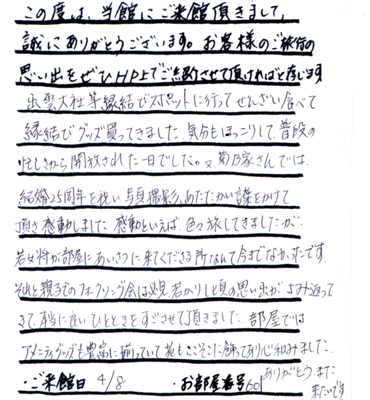 この度は、当館にご来館頂きまして、
誠にありがとうございます。お客様のご旅行の
思い出をぜひHP上でご紹介させて頂ければと存じます
出雲大社等縁結びスポットに行ってぜんざい食べて
縁結びグッズ買ってきました。気分もほっこりして、普段の
忙しさから開放された一日でした。又菊乃家さんでは、
結婚25周年を祝い写真撮影、あたたかい言葉をかけて
頂き感動しました 感動といえば 色々旅してきましたが、
若女将が部屋にあいさつに来てくださる所なんて今までなかったです。
それと親子でのフォークソング会は必見 若かりし頃の思い出がよみ返って
きて、本当に良いひとときをすごさせて頂きました。部屋では
アメニティグッズも豊富に揃っていて 花もここそこに飾ってあり心和みました。
・ご来館日 4/8 ・お部屋番号 601
ありがとう また
来たいです